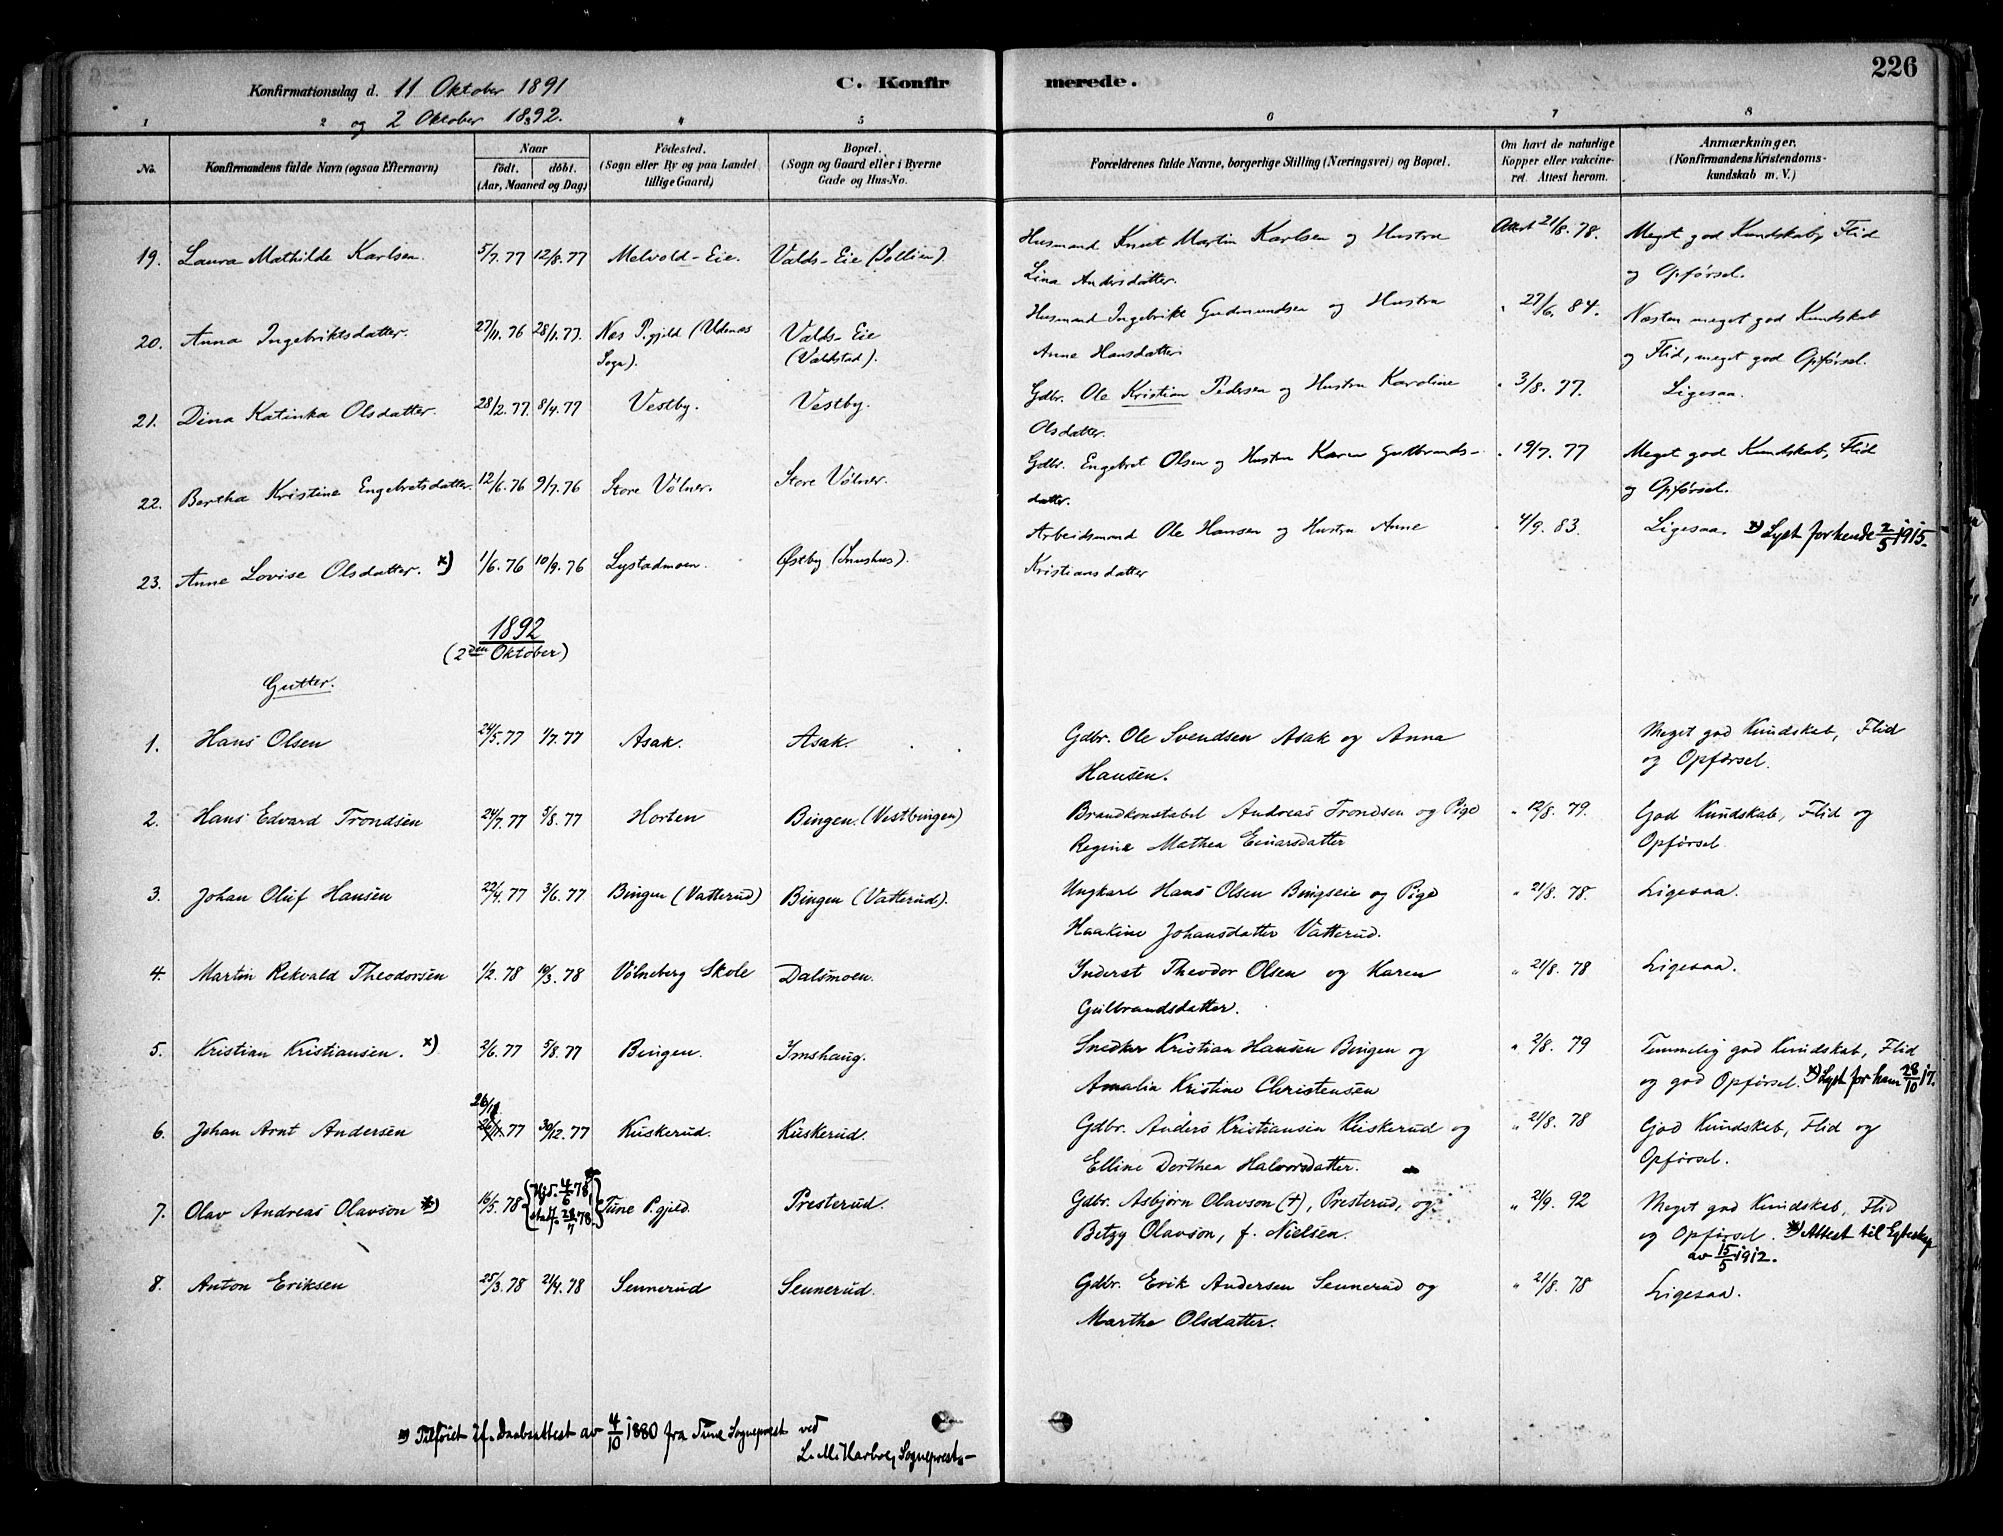 226
Konfirmationsdag d. 11 Oktober 1891
og 2 Oktober 1892.
C. Konfirmerede.
1 2 4 5 6 7 8
No. Konfirmandens fulde Navn (ogsaa Efternavn)
Naar
født. døbt.
(Aar, Maaned og Dag)
Fødested.
(Sogn eller By og paa Landet
tillige Gaard)
Bopæl.
(Sogn og Gaard eller i Byerne
Gade og Hus-No.
Forældrenes fulde Navne, borgerlige Stilling (Næringsvei) og Bopæl.
Om havt de naturlige
Kopper eller vakcine-
ret. Attest herom.
Anmærkninger.
(Konfirmandens Kristendoms-
kundskab m. V.)
19. Laura Mathilde Karlsen. 5/7.77 12/8.77 Melvold-Eie. Valds-Eie (Sollien). Husmand Knut Martin Karlsen og Hustru Attest 21/8.78. Meget god Kundskab, Flid
Lina Andersdatter. og Opførsel.
20. Anna Ingebriktsdatter. 27/11.76 28/1.77. Nes P.gjeld (Udenes Valds-Eie Husmand Ingebrikt Gudmundsen og Hustru " 27/6.84. Næsten meget god Kundskab
Sogn). (Valdstad). Anne Hansdatter. og Flid, meget god Opførsel.
21. Dina Katinka Olsdatter. 28/2.77. 8/4.77 Vestby. Vestby. Gdbr. Ole Kristian Pedersen og Hustru Karoline " 3/8.77. Ligesaa.
Olsdatter.
22. Bertha Kristine Engebretsdatter. 12/6.76 9/7.76 Store Vølner. Store Vølner. Gdbr. Engebret Olsen og Hustru Karen Gulbrands- " 19/7.77 Meget god Kundskab, Flid
datter. og Opførsel.
23. Anne Lovise Olsdatter. x) 1/6.76 10/9.76 Lystadmoen. Østby (Snushus). Arbeidsmand Ole Hansen og Hustru Anne " 4/9.83. Ligesaa. x) Lyst for hende 2/5 1915.
Kristiansdatter
1892
(2den Oktober)
Gutter.
1. Hans Olsen 24/5.77 1/7.77 Asak. Asak. Gdbr. Ole Svendsen Asak og Anna Meget god Kundskab, Flid
Hansen. og Opførsel.
2. Hans Edvard Trondsen 24/7.77 5/8.77 Horten Bingen. (Vestbingen) Brandkonstabel Andreas Trondsen og Pige " 12/8.79. God Kundskab, Flid og
Regine Mathea Einarsdatter Opførsel.
3. Johan Oluf Hansen 22/4.77 3/6.77 Bingen (Vatterud) Bingen (Vatterud). Ungkarl Hans Olsen Bingseie og Pige " 21/8.78. Ligesaa.
Haakine Johansdatter Vatterud.
4. Martin Rekvald Theodorsen 1/2.78 10/3.78 Vølneberg Skole Dalsmoen. Inderst Theodor Olsen og Karen " 21/8.78 Ligesaa.
Gulbrandsdatter.
5. Kristian Kristiansen. x) 2/6.77 5/8.77 Bingen. Imshaug. Snedker Kristian Hansen Bingen og " 2/8.79 Temmelig god Kundskab, Flid
Amalia Kristine Christensen og god Opførsel. x) Lyst for ham 28/10 17.
6. Johan Arnt Andersen 77 30/12.77 Kuskerud. Kuskerud. Gdbr. Anders Kristiansen Kuskerud og " 21/8.78 God Kundskab, Flid og
Elline Dorthea Halvorsdatter. Opførsel.
7. Olav Andreas Olavson 16/5.78 Hjd. 4/6 78, stadf. 28/7 78. Tune P.gjeld. Presterud. Gdbr. Asbjørn Olavson (†), Presterud, og " 21/9.92 Meget god Kundskab, Flid
Betzy Olavson, f. Nielsen. og Opførsel. x) Attest til Egteskap
av 15/5 1912.
8. Anton Eriksen 25/3.78 21/4.78 Sennerud Sennerud. Gdbr. Erik Andersen Sennerud og " 21/8.78 Ligesaa.
Marthe Olsdatter.
Tilføiet if. Daabsattest av 4/10 1880 fra Tune Sogneprest ved
L. M. Harboe, Sogneprest.